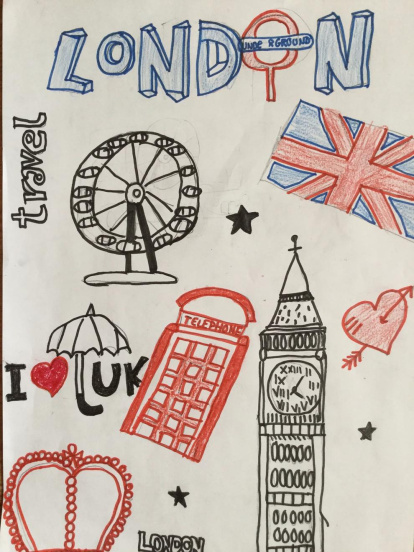 LONDON
UNDERGROUND
travel
TELEPHONE
I UK
LONDON